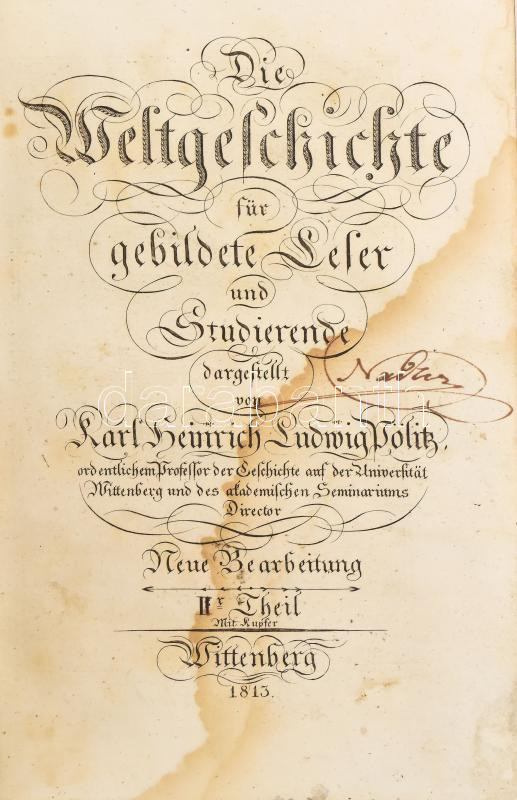 Die
Weltgeschichte
für
gebildete Leser
und
Studierende
dargestellt
von
Karl Heinrich Ludwig Pölitz,
ordentlichem Professor der Geschichte auf der Universität
Wittenberg und des akademischen Seminariums
Director
Neue Bearbeitung
IIr Theil
Mit Kupfer
Wittenberg
1813.
darabanth